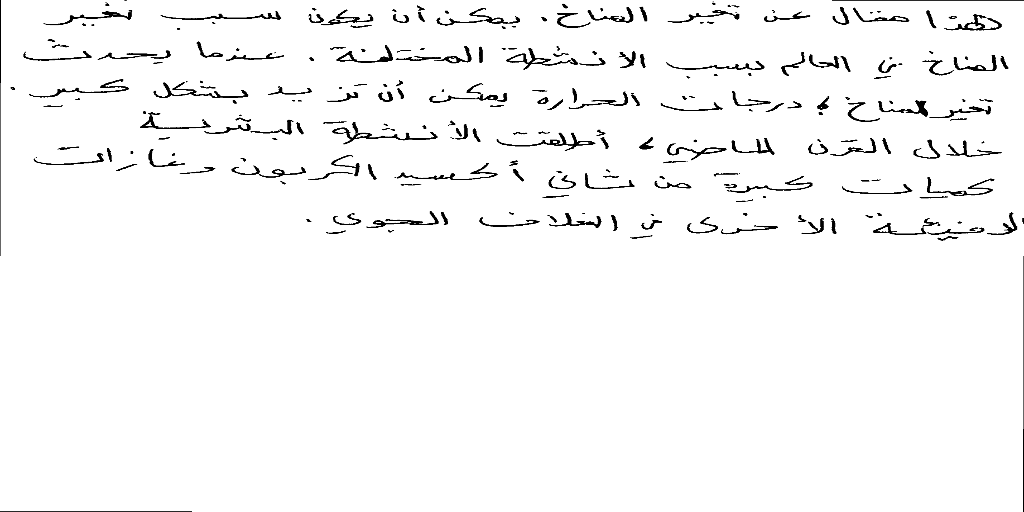 هذا مقال عن تغير المناخ. يمكن أن يكون سبب تغير
المناخ في العالم بسبب الانشطة المختلفة. عندما يحدث
تغير المناخ، درجات الحرارة يمكن أن تزيد بشكل كبير.
خلال القرن الماضي، أطلقت الأنشطة البشرية
كميات كبيرة من ثاني أكسيد الكربون وغازات
الدفيئة الأخرى في الغلاف الجوي.